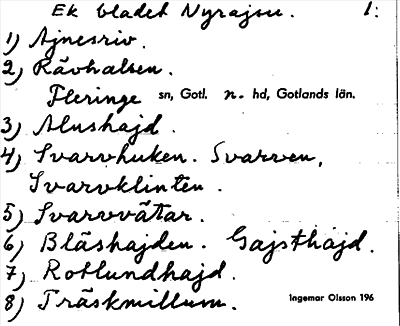 Ek bladet Nyrajsu. 1:
1) Ajnesriv.
2) Rävhalsen.
Fleringe sn, Gotl. n. hd, Gotlands län.
3) Alushajd.
4) Svarvhuken. Svarven,
Svarvklinten.
5) Svarvvätar.
6) Bläshajden. Gajsthajd.
7) Rotlundhajd.
8) Träskmillum. Ingemar Olsson 196